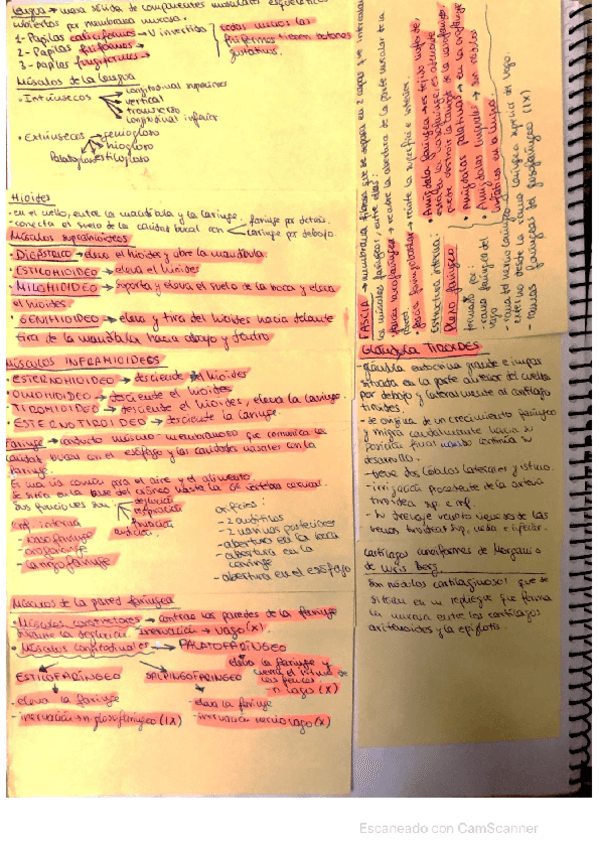 Lengua → masa sólida de componentes musculares esqueléticos
cubiertos por membrana mucosa.
1- Papilas caliciformes → V invertida
2- Papilas filiformes →
3- Papilas fungiformes →
todas menos las
filiformes tienen botones
gustativos.
Músculos de la lengua
• Intrínsecos
longitudinal superiores
vertical
transverso
longitudinal inferior
• Extrínsecos → geniogloso
hiogloso
Palatogloso estilogloso
Hioides
• en el cuello, entre la mandíbula y la laringe.
• conecta el suelo de la cavidad bucal con
faringe por detrás.
laringe por debajo.
Músculos suprahioideos
- DIGÁSTRICO → eleva el hioides y abre la mandíbula.
- ESTILOHIOIDEO → eleva el hioides
- MILOHIOIDEO → soporta y eleva el suelo de la boca y eleva
el hioides.
• GENIHIOIDEO → eleva y tira del hioides hacia delante
tira de la mandíbula hacia abajo y dentro
MÚSCULOS INFRAHIOIDEOS
- ESTERNOHIOIDEO → desciende el hioides
- OMOHIOIDEO → desciende el hioides.
- TIROHIOIDEO → desciende el hioides, eleva la laringe.
- ESTERNOTIROIDEO → desciende la laringe.
Faringe → conducto músculo membranoso que comunica la
cavidad bucal con el esófago y las cavidades nasales con la
laringe.
Es una vía común para el aire y el alimento
se sitúa en la base del cráneo hasta la C6 vértebra cervical.
Sus funciones son
deglución
respiración
fonación
audición
Conf. interna
- nasofaringe
- orofaringe
- laringofaringe
orificios:
- 2 auditivas
- 2 coanas posteriores
- abertura en la boca
- abertura en la
laringe
- abertura en el esófago
Músculos de la pared faríngea
- Músculos constrictores → contrae las paredes de la faringe
durante la deglución. inervación → vago (X)
• Músculos longitudinales → PALATOFARÍNGEO
eleva la faringe y
cierra el istmo de
las fauces
- n vago (X)
ESTILOFARÍNGEO
- eleva la faringe
- inervación → n. glosofaríngeo (IX)
SALPINGOFARÍNGEO
- eleva la faringe
- inervación nervio vago (X)
FASCIA → membrana fibrosa que se separa en 2 capas que intercalan
los músculos faríngeos, entre ellas:
Estructura interna:
• Amígdala faríngea →
• Amígdalas palatinas → en la orofaringe
• Amígdalas linguales → son nódulos
linfáticos en la lengua.
Plexo faríngeo
formado por:
- rama faríngea del
vago
- ramas faríngeas del glosofaríngeo (IX)
Glándula TIROIDES
- glándula endocrina grande e impar
situada en la parte anterior del cuello
por debajo y lateralmente al cartílago
tiroides.
- se origina de un crecimiento faríngeo
y migra caudalmente hacia su
posición final cuando continúa su
desarrollo.
- tiene dos lóbulos laterales y istmo.
- irrigación procedente de la arteria
tiroidea sup. e inf.
- su drenaje venoso viene de las
venas tiroideas sup, media e inferior.
Cartílagos cuneiformes de Morgagni o
de Wrisberg
Son nódulos cartilaginosos que se
sitúan en un repliegue que forma
la mucosa entre los cartílagos
aritenoides y la epiglotis.
Escaneado con CamScanner